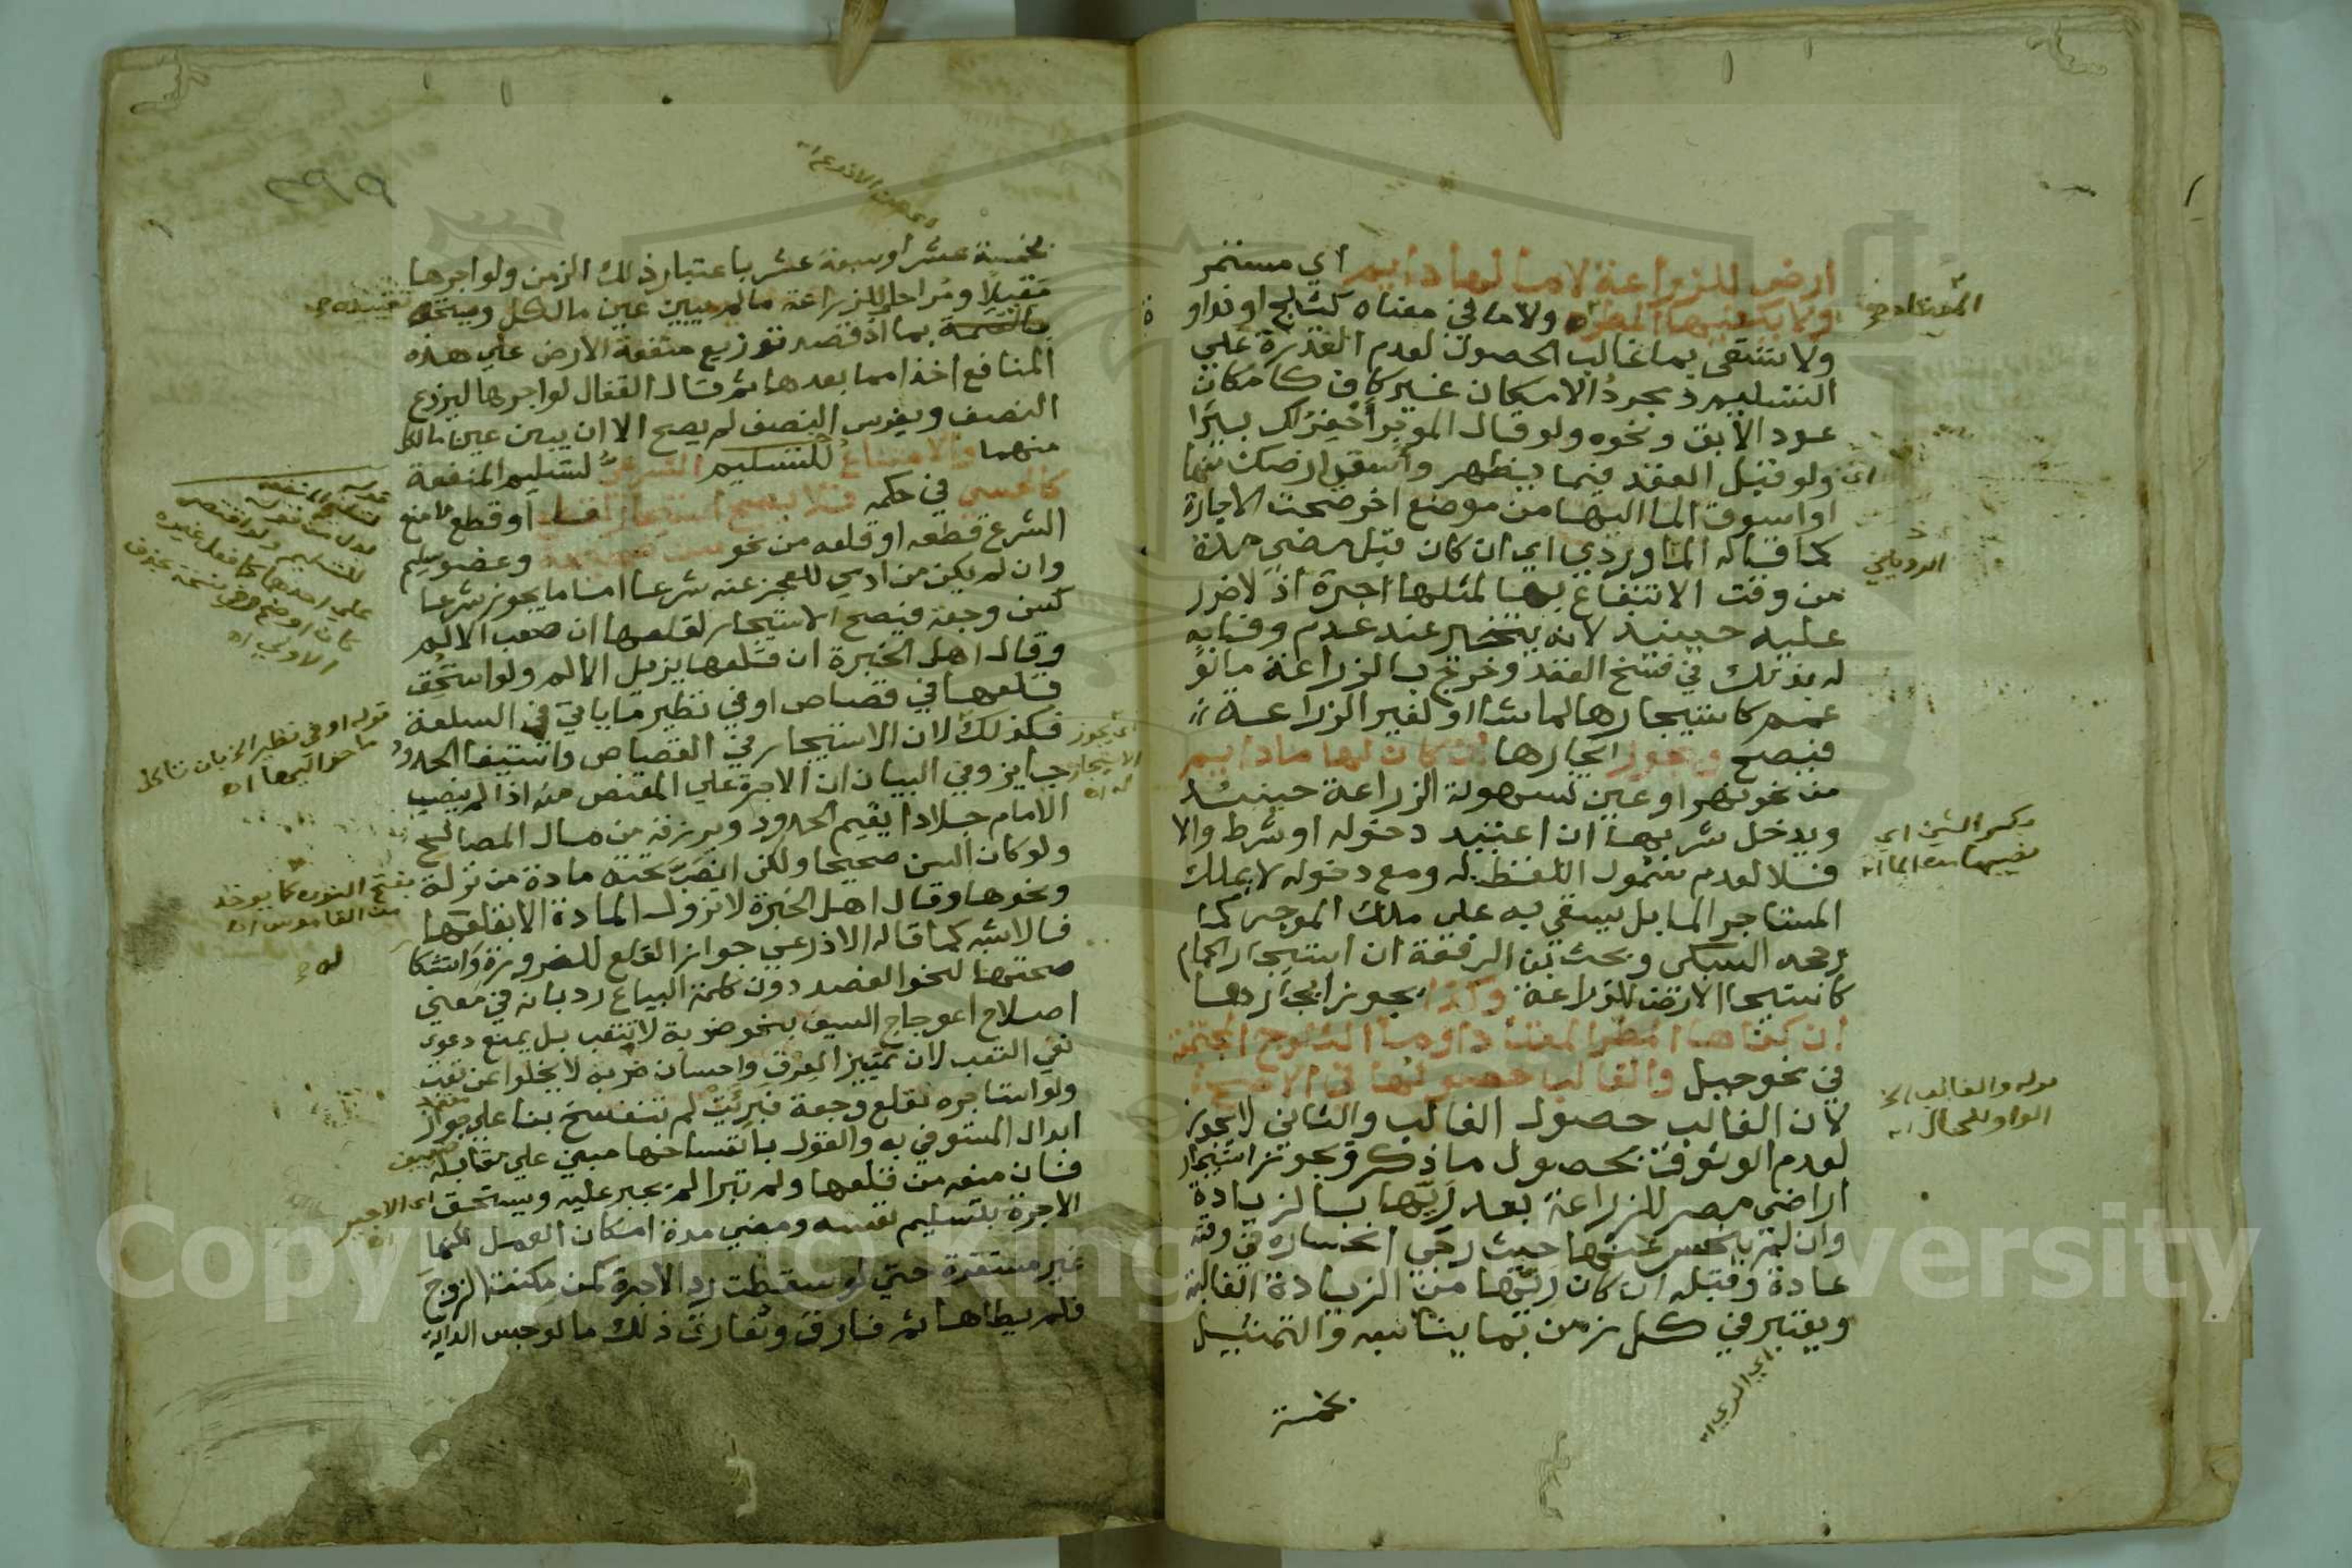 ارض للزراعة لا ما لها دايم اي مستمر
ولا يكفيها المطر ولا ما في معناه كثلج او نداوة
ولا تسقى بما غالب الحصول لعدم القدرة علي
التسليم ومجرد الامكان غير كاف كامكان
عود الابق ونحوه ولو قال الموجر احفر لك بيرا
ولو قبل العقد فيما يظهر واسقي ارضك منها
او اسوق الما اليها من موضع اخر صحت الاجارة
كما قاله الروياني اي ان كان قبل مضي مدة
من وقت الانتفاع بها لمثلها اجرة اذ لا ضرر
عليه حينيذ لانه يتخير عند عدم وفايه
له بذلك في فسخ العقد وخرج بالزراعة ما لو
عمم كاستيجارها لما شا او لغير الزراعة
فيصح ويجوز ايجارها ان كان لها ما دايم
من نحو نهر او عين لسهولة الزراعة حينيذ
ويدخل شربها ان اعتيد دخوله او شرط والا
فلا لعدم شمول اللفظ له ومع دخوله لا يملك
المستاجر الما بل يسقي به علي ملك الموجر كما
رجحه السبكي وبحث ابن الرفعة ان استيجار الحمام
كاستيجار الارض للزراعة وكذا يجوز ايجارها
ان كفاها المطر المعتاد او ما الثلوج المجتمعة
في نحو جبل والغالب حصولها في الاصح
لان الغالب حصول الغالب والثاني لا يجوز
لعدم الوثوق بحصول ما ذكر ويجوز استيجار
اراضي مصر للزراعة بعد ريها بالزيادة
وان لم ينحسر عنها حيث رجي انحساره في وقته
عادة وقبله ان كان ريها من الزيادة الغالبة
ويعتبر في كل زمن بما يناسبه والتمثيل
بخمسة
المعتاد
الروياني
بكسر الشين اي
نصيبها من الما اه
قوله والغالب الخ
الواو للحال اه
اي الري اه
بخمسة عشر او سبعة عشر باعتبار ذلك الزمن ولو اجرها
مقيلا ومراحا للزراعة ما لم يبين عين ما لكل
بما اذ قصد توزيع منفعة الارض علي هذه
المنافع اخذا مما بعدها ثم قال القفال لو اجرها ليزرع
النصف ويغرس النصف لم يصح الا ان يبين عين ما لكل
منهما والامتناع للتسليم الشرعي لتسليم المنفعة
كالحسي في حكمه فلا يصح استيجار لقلع او قطع ما منع
الشرع قطعه او قلعه من نحو سن صحيحة وعضو سليم
وان لم يكن من ادمي للعجز عنه شرعا اما ما يجوز شرعا
كسن وجعة فيصح الاستيجار لقلعها ان صعب الالم
وقال اهل الخبرة ان قلعها يزيل الالم ولو استحق
قلعها في قصاص او في نظير ما ياتي في السلعة
فكذلك لان الاستيجار في القصاص واستيفا الحدود
جايز وفي البيان ان الاجرة علي المقتص منه اذا لم ينصب
الامام جلادا يقيم الحدود ويرزقه من مال المصالح
ولو كان السن صحيحا ولكن انصب تحته مادة من نزلة
ونحوها وقال اهل الخبرة لا تزول المادة الا بقلعها
فالاشبه كما قاله الاذرعي جواز القلع للضرورة واستشكل
صحتها لنحو الفصد دون كلمة البياع رد بانه في معني
اصلاح اعوجاج السيف بنحو ضربة لا تتعب بل يمنع دعوي
نفي التعب لان تمييز العرق واحسان ضربه لا يخلو عن تعب
ولو استاجره لقلع وجعة فبرئت لم تنفسخ بنا علي جواز
ابدال المستوفي به والقول بانفساخها مبني علي مقابله
فان منعه من قلعها ولم تبرا لم يجبر عليه ويستحق
الاجرة بتسليم نفسه ومضي مدة امكان العمل لكنها
غير مستقرة حتي لو سقطت رد الاجرة كمن مكنت الزوج
فلم يطاها ثم فارق وتفارق ذلك ما لو حبس الدابة
قوله او في نظير الخ
بفتح النون كما يوخذ
من القاموس اه
اي الاجير
اه
اي يجوز
الاستيجار
له اه
Copyright © King Saud University